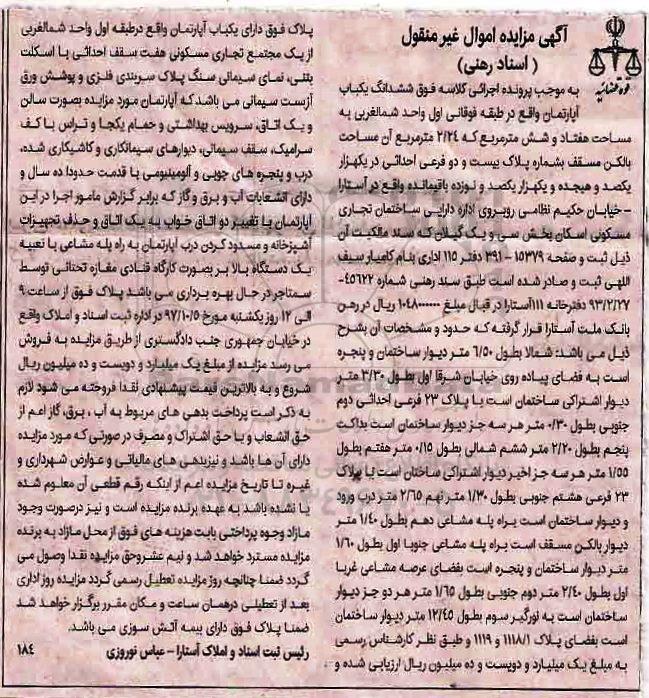 آگهی مزایده اموال غیر منقول
( اسناد رهنی)
قوه قضائیه
به موجب پرونده اجرائی کلاسه فوق ششدانگ یکباب
آپارتمان واقع در طبقه فوقانی اول واحد شمالغربی به
مساحت هفتاد و شش مترمربع که ۲/۲۴ مترمربع آن مساحت
بالکن مسقف بشماره پلاک بیست و دو فرعی احداثی در یکهزار
یکصد و هیجده و یکهزار یکصد و نوزده باقیمانده واقع در آستارا
– خیابان حکیم نظامی روبروی اداره دارایی ساختمان تجاری
مسکونی اسکان بخش سی و یک گیلان که سند مالکیت آن
ذیل ثبت و صفحه ۱۵۳۷۹ – ۳۹۱ دفتر ۱۱۵ اداری بنام کامیار سیف
اللهی ثبت و صادر شده است طبق سند رهنی شماره ۴۵۶۲۲-
۹۳/۲/۲۷ دفترخانه ۱۱۱آستارا در قبال مبلغ ۱۰۴۸۰۰۰۰۰۰ ریال در رهن
بانک ملت آستارا قرار گرفته که حدود و مشخصات آن بشرح
ذیل می باشد: شمالا بطول ۶/۵۰ متر دیوار ساختمان و پنجره
است به فضای پیاده روی خیابان شرقا اول بطول ۳/۳۰ متر
دیوار اشتراکی ساختمان است با پلاک ۲۳ فرعی احداثی دوم
جنوبی بطول ۰/۳۰ متر هر سه جز دیوار ساختمان است بداکت
پنجم بطول ۲/۲۰ متر ششم شمالی بطول ۰/۱۵ متر هفتم بطول
۱/۵۵ متر هر سه جز اخیر دیوار اشتراکی ساختان است با پلاک
۲۳ فرعی هشتم جنوبی بطول ۱/۳۰ متر نهم ۲/۶۵ متر درب ورود
و دیوار ساختمان است براه پله مشاعی دهم بطول ۱/۴۰ متر
دیوار بالکن مسقف است براه پله مشاعی جنوبا اول بطول ۱/۶۰
متر دیوار ساختمان و پنجره است بفضای عرصه مشاعی غربا
اول بطول ۲/۴۰ متر دوم جنوبی بطول ۱/۶۵ متر هر دو جز دیوار
ساختمان است به نورگیر سوم بطول ۱۲/۴۵ متر دیوار ساختمان
است بفضای پلاک ۱۱۱۸/۱ و ۱۱۱۹ و طبق نظر کارشناس رسمی
به مبلغ یک میلیارد و دویست و ده میلیون ریال ارزیابی شده و
پلاک فوق دارای یکباب آپارتمان واقع درطبقه اول واحد شمالغربی
از یک مجتمع تجاری مسکونی هفت سقف احداثی با اسکلت
بتنی، نمای سیمانی سنگ پلاک سربندی فلزی و پوشش ورق
آزبست سیمانی می باشد که آپارتمان مورد مزایده بصورت سالن
و یک اتاق، سرویس بهداشتی و حمام یکجا و تراس با کف
سرامیک، سقف سیمانی، دیوارهای سیمانکاری و کاشیکاری شده،
درب و پنجره های چوبی و آلومینیومی با قدمت حدودا ده سال و
دارای انشعابات آب و برق و گاز که برابر گزارش مامور اجرا در این
آپارتمان با تغییر دو اتاق خواب به یک اتاق و حذف تجهیزات
آشپزخانه و مسدود کردن درب آپارتمان به راه پله مشاعی با تعبیه
یک دستگاه بالا بر بصورت کارگاه قنادی مغازه تحتانی توسط
مستاجر در حال بهره برداری می باشد پلاک فوق از ساعت ۹
الی ۱۲ روز یکشنبه مورخ ۹۷/۱۰/۵ در اداره ثبت اسناد و املاک واقع
در خیابان جمهوری جنب دادگستری از طریق مزایده به فروش
می رسد مزایده از مبلغ یک میلیارد و دویست و ده میلیون ریال
شروع و به بالاترین قیمت پیشنهادی نقدا فروخته می شود لازم
به ذکر است پرداخت بدهی های مربوط به آب ، برق، گاز اعم از
حق انشعاب و یا حق اشتراک و مصرف در صورتی که مورد مزایده
دارای آن ها باشد و نیزبدهی های مالیاتی و عوارض شهرداری و
غیره تا تاریخ مزایده اعم از اینکه رقم قطعی آن معلوم شده
یا نشده باشد به عهده برنده مزایده است و نیز درصورت وجود
مازاد وجوه پرداختی بابت هزینه های فوق از محل مازاد به برنده
مزایده مسترد خواهد شد و نیم عشروحق مزایده نقدا وصول می
گردد ضمنا چنانچه روز مزایده تعطیل رسمی گردد مزایده روز اداری
بعد از تعطیلی درهمان ساعت و مکان مقرر برگزار خواهد شد
ضمنا پلاک فوق دارای بیمه آتش سوزی می باشد.
رئیس ثبت اسناد و املاک آستارا – عباس نوروزی ۱۸۴